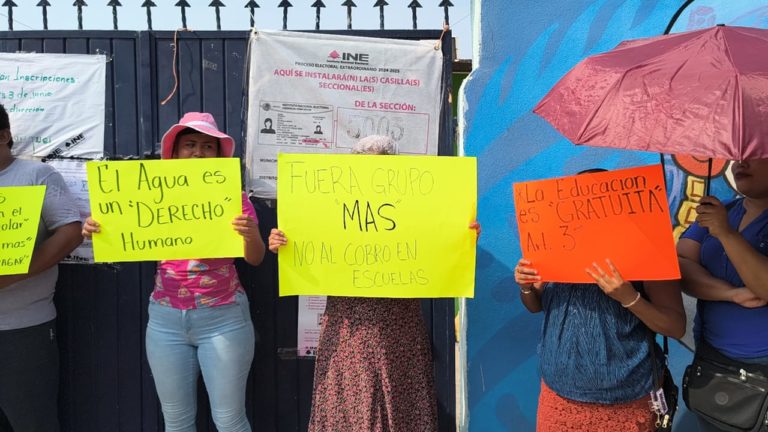 an Inscripciones
3 de junio
dirección
INE
INE
Instituto Nacional Electoral
PROCESO ELECTORAL EXTRAORDINARIO 2024-2025
AQUÍ SE INSTALARÁ(N) LA(S) CASILLA(S)
SECCIONAL(ES)
DE LA SECCIÓN:
MUNICIPIO
DISTRITO
n el
olar"
mas"
AGAR"
El Agua es
un "DERECHO"
Humano
FUERA GRUPO
"MAS"
NO AL COBRO EN
ESCUELAS
La Educación
es "GRATUITA"
Art. 3°